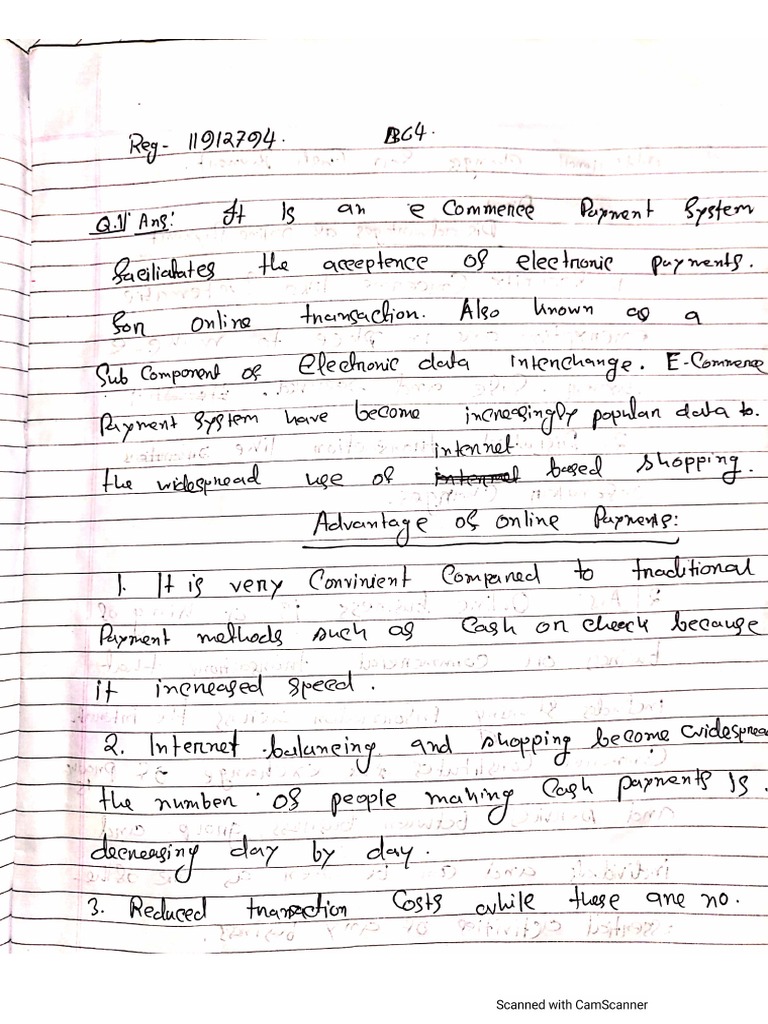 Reg- 11912794. BG4.
Q.1/ Ans: It Is an e Commence Payment System
faciliatates the acceptence of electronic payments.
for online transaction. Also known as a
Sub Component of Electronic data interchange. E-Commerce
Payment System have become increasingly popular data to.
internet
the widespread use of based shopping.
Advantage of online Payments:
1. It is very Convinient Compared to traditional
Payment methods such as Cash or check because
it increased speed.
2. Internet balancing and shopping become widespread
the number of people making Cash payments Is.
decreasing day by day.
3. Reduced transaction Costs while these are no.
Scanned with CamScanner